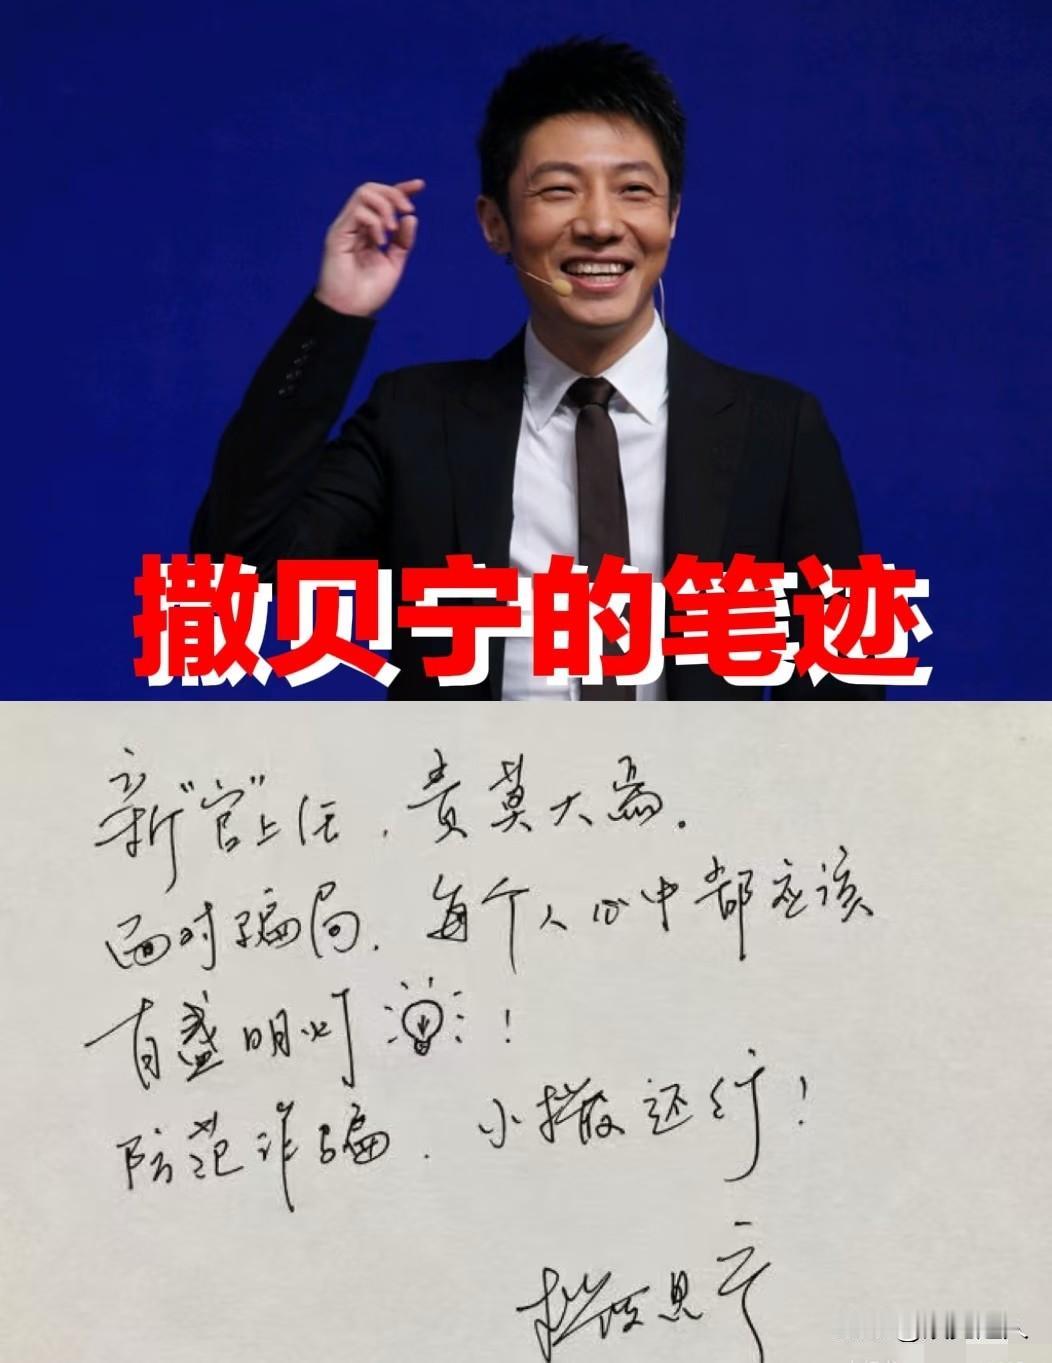 撒贝宁的笔迹
新“官”上任，责莫大焉。
面对骗局，每个人心中都应该
有盏明灯！
防范诈骗，小撒还行！
撒贝宁